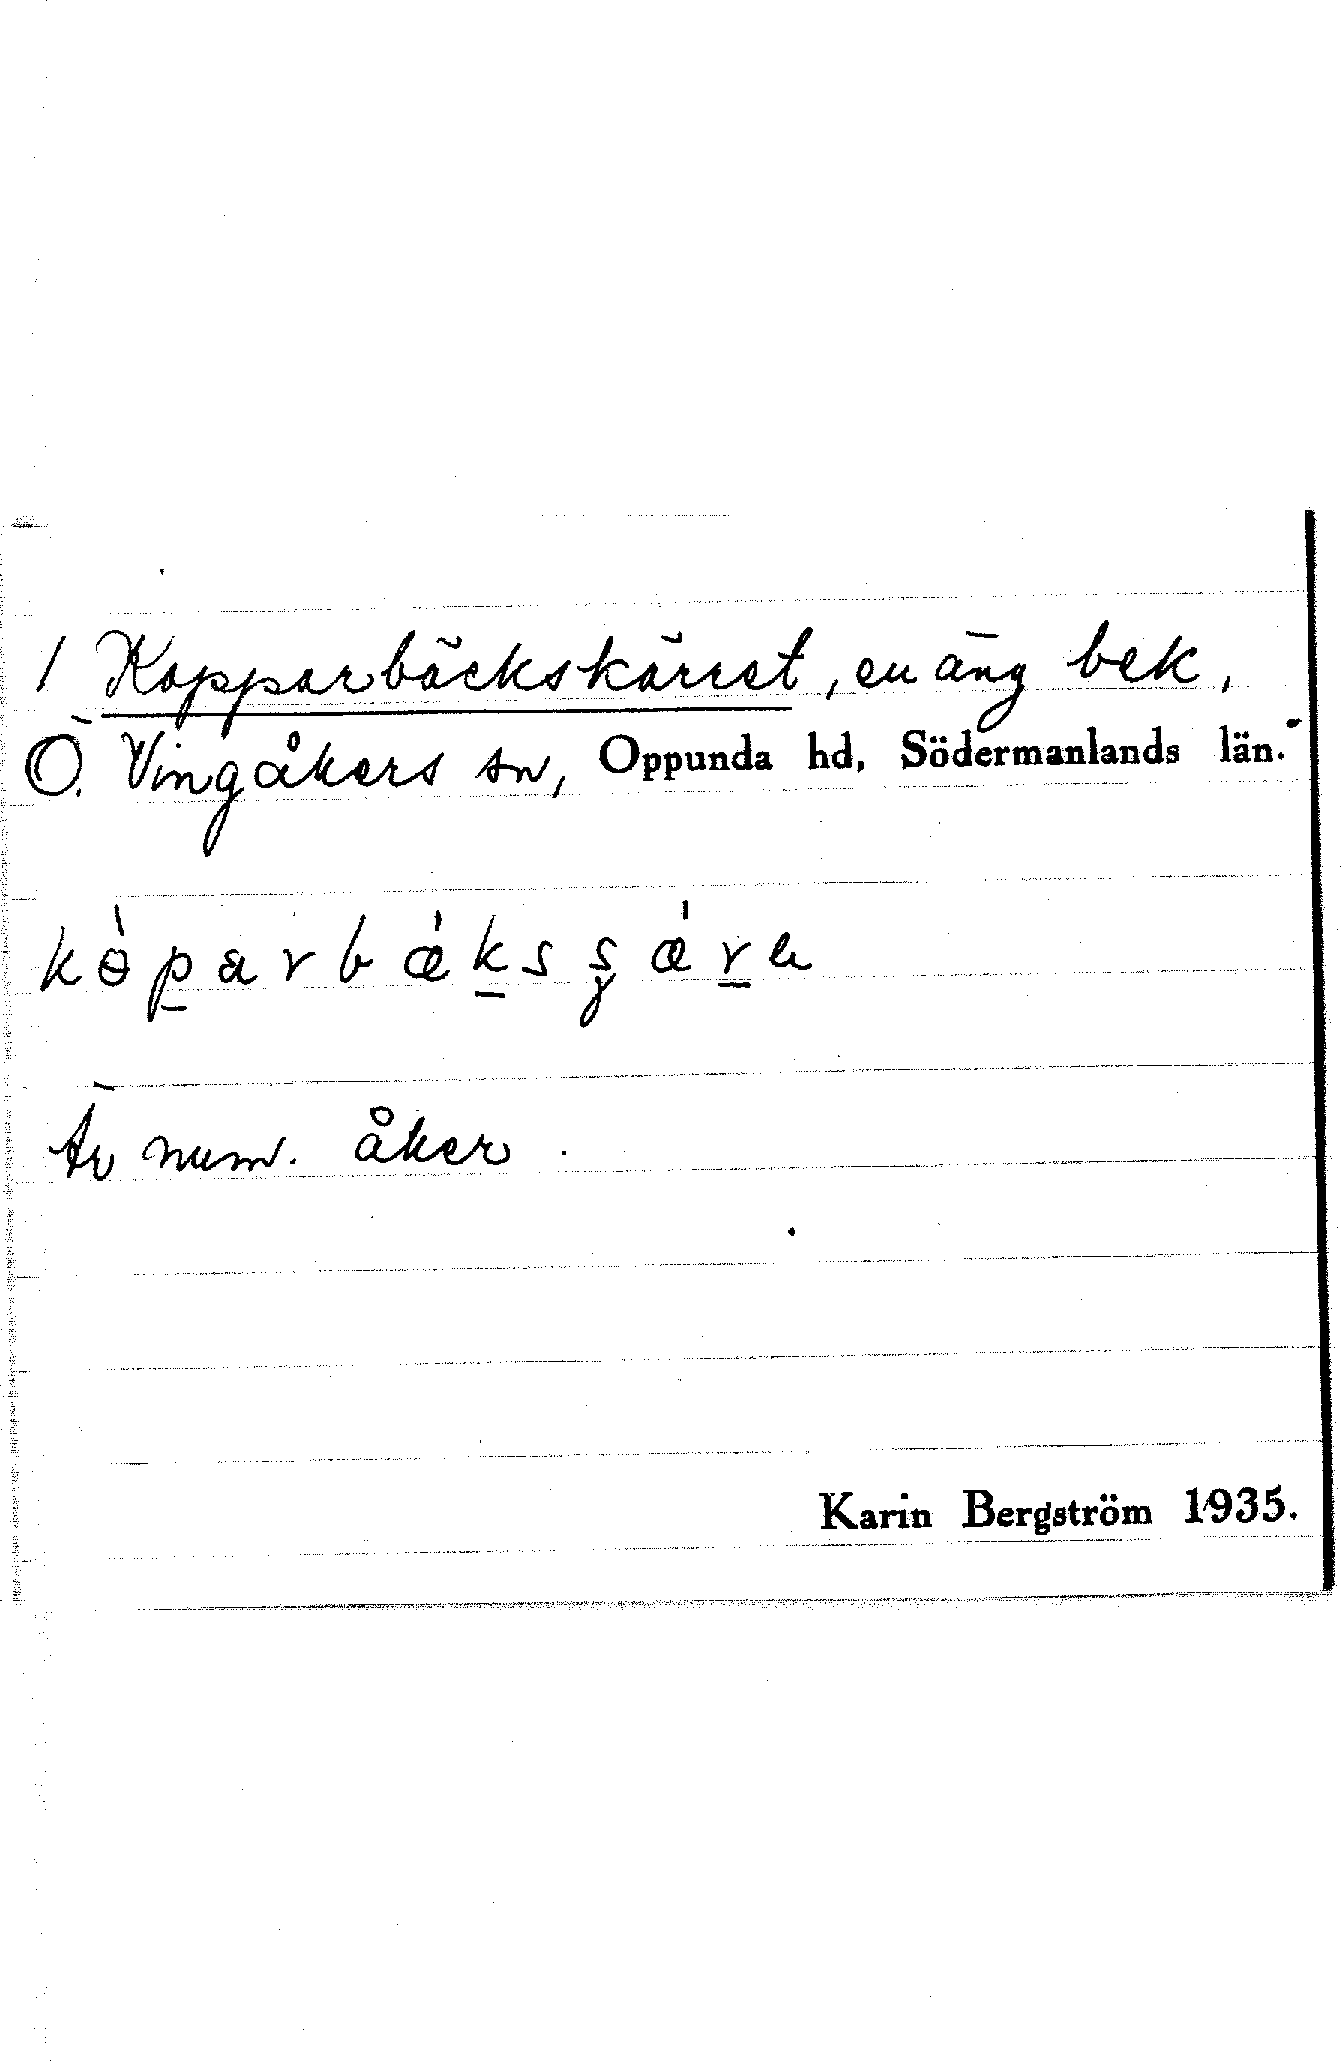 1 Kopparbäckskärret, en äng bek,
Ö. Vingåkers sn, Oppunda hd, Södermanlands län.
Är num. åker.
Karin Bergström 1935.